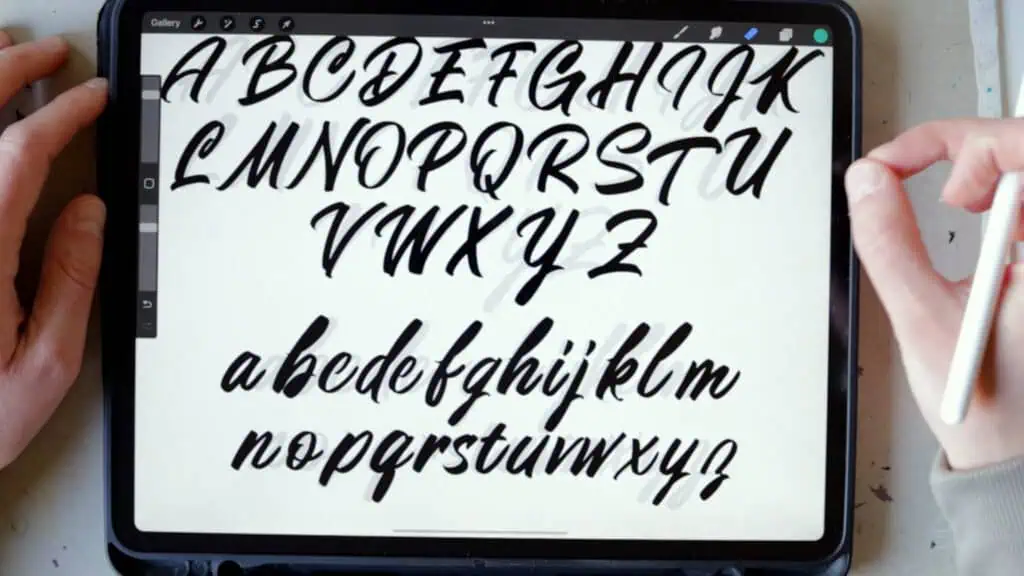 Gallery
A B C D E F G H I J K
L M N O P Q R S T U
V W X Y Z
a b c d e f g h i j k l m
n o p q r s t u v w x y z